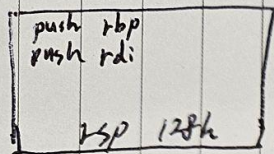 push rbp
push rdi
rsp 128h